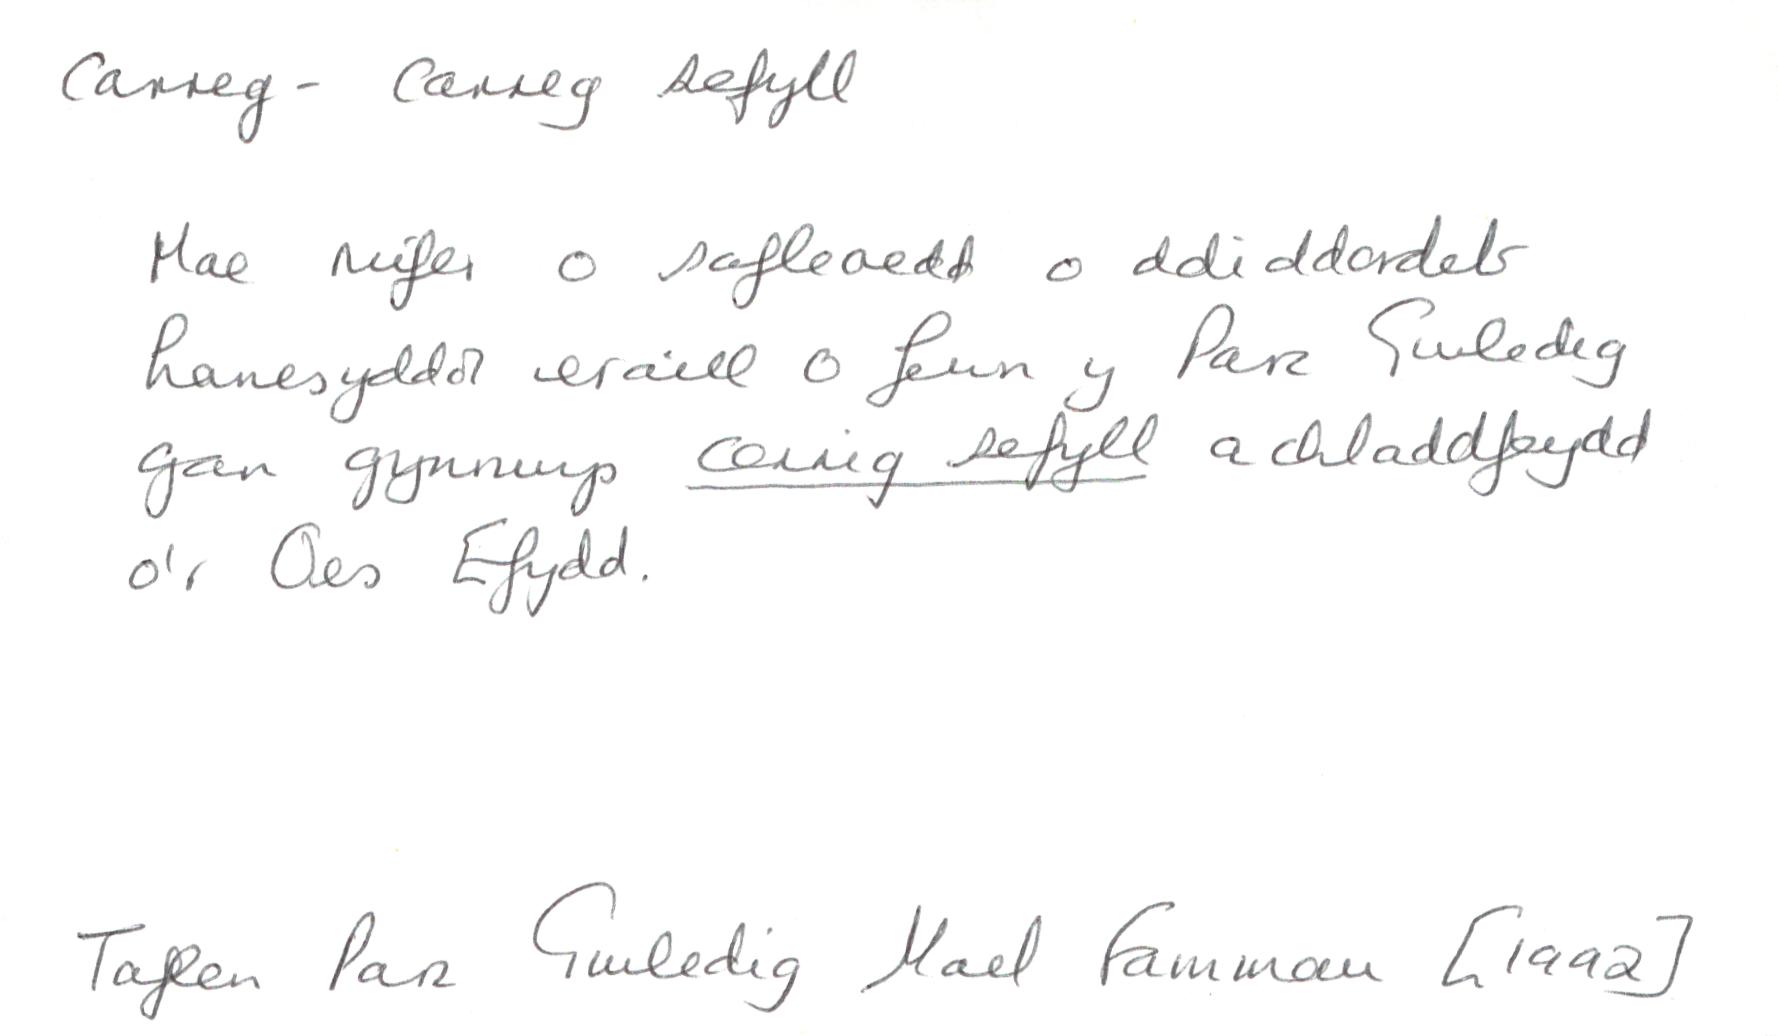 Carreg - Carreg sefyll
Mae nifer o safleoedd o ddiddordeb
hanesyddol eraill o fewn y Parc Gwledig
gan gynnwys cerrig sefyll a chladdfeydd
o'r Oes Efydd.
Taflen Parc Gwledig Moel Fammau [1992]